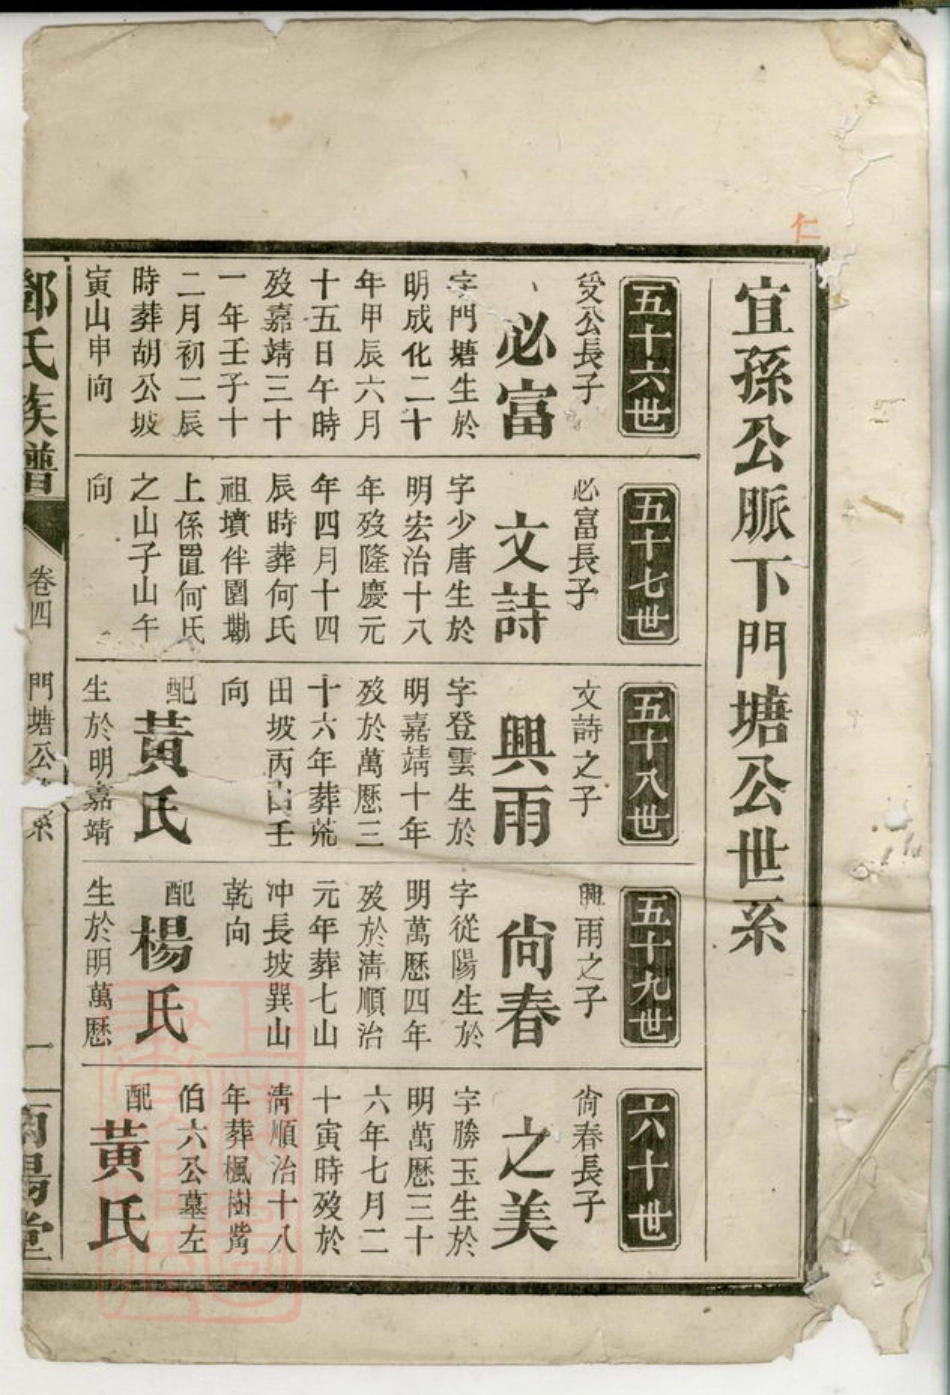 仁
宜孫公脈下門塘公世系
五十六世
受公長子
必富
字門塘生於
明成化二十
年甲辰六月
十五日午時
歿嘉靖三十
一年壬子十
二月初二辰
時葬胡公坡
寅山申向
五十七世
必富長子
文詩
字少唐生於
明宏治十八
年歿隆慶元
年四月十四
辰時葬何氏
祖墳伴園墈
上係置何氏
之山子山午
向
五十八世
文詩之子
興雨
字登雲生於
明嘉靖十年
歿於萬歷三
十六年葬荒
田坡丙山壬
向
配
黃氏
生於明嘉靖
五十九世
興雨之子
尙春
字從陽生於
明萬歷四年
歿於清順治
元年葬七山
冲長坡巽山
乾向
配
楊氏
生於明萬歷
六十世
尙春長子
之美
字勝玉生於
明萬歷三十
六年七月二
十寅時歿於
清順治十八
年葬楓樹嘴
伯六公墓左
配
黃氏
鄧氏族譜
卷四
門塘公 系
一
南陽堂